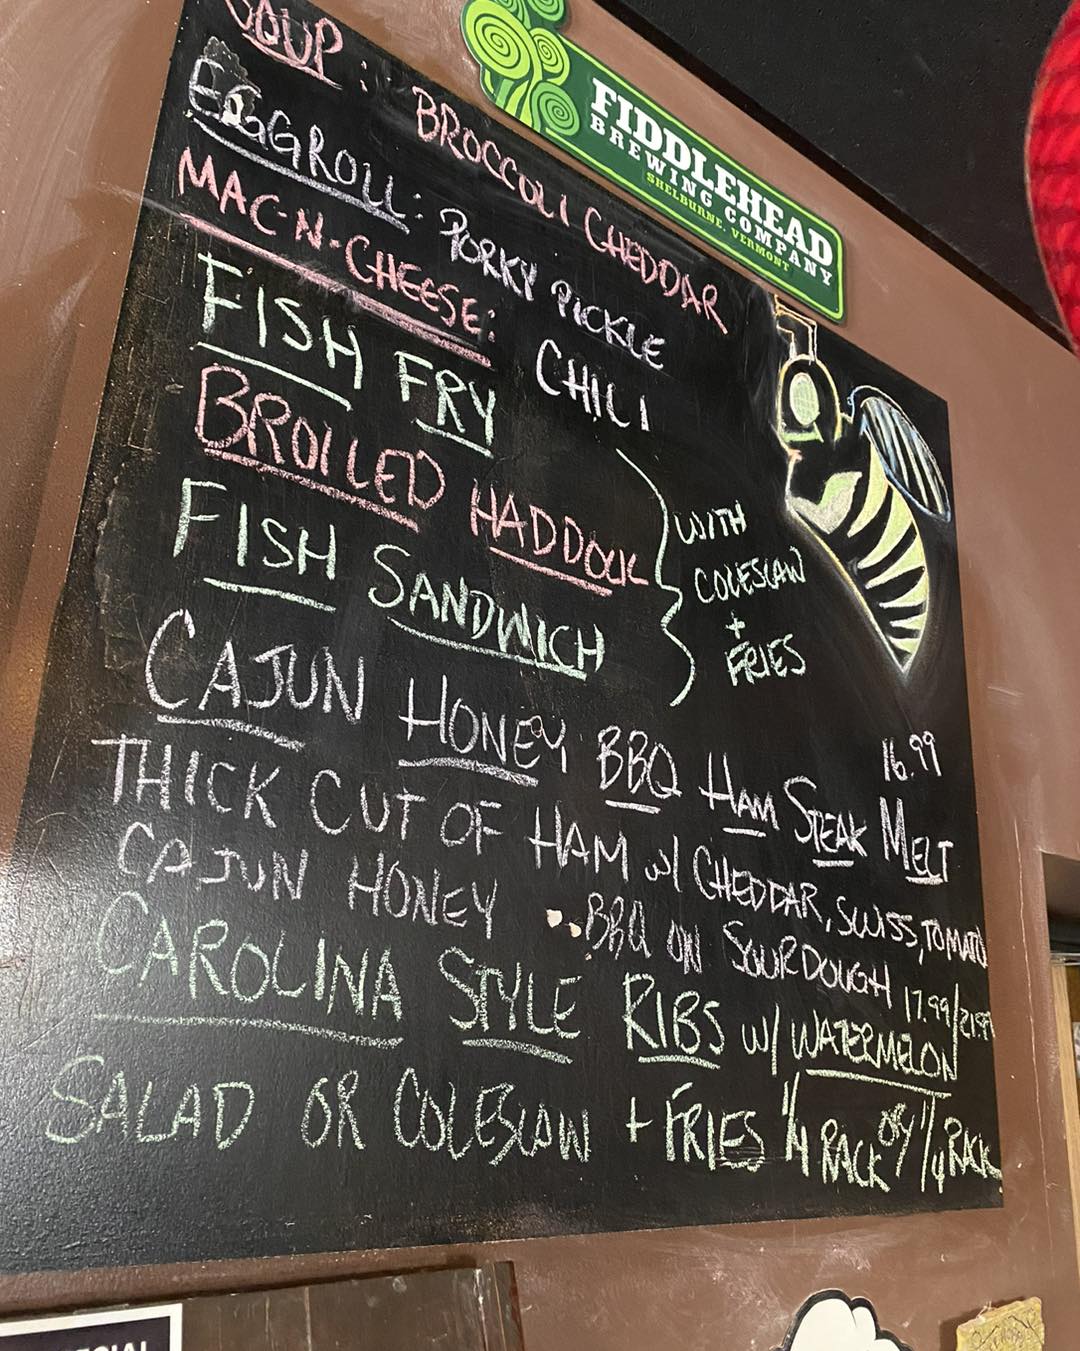 SOUP: BROCCOLI CHEDDAR
EGGROLL: PORKY PICKLE
MAC-N-CHEESE: CHILI
FISH FRY
BROILED HADDOCK
FISH SANDWICH
WITH
COLESLAW
+
FRIES
CAJUN HONEY BBQ HAM STEAK MELT 16.99
THICK CUT OF HAM w/ CHEDDAR, SWISS, TOMATO
CAJUN HONEY BBQ ON SOURDOUGH
17.99/21.99
CAROLINA STYLE RIBS w/ WATERMELON
SALAD OR COLESLAW + FRIES 1/4 RACK OR 1/4 RACK
FIDDLEHEAD
BREWING COMPANY
SHELBURNE, VERMONT